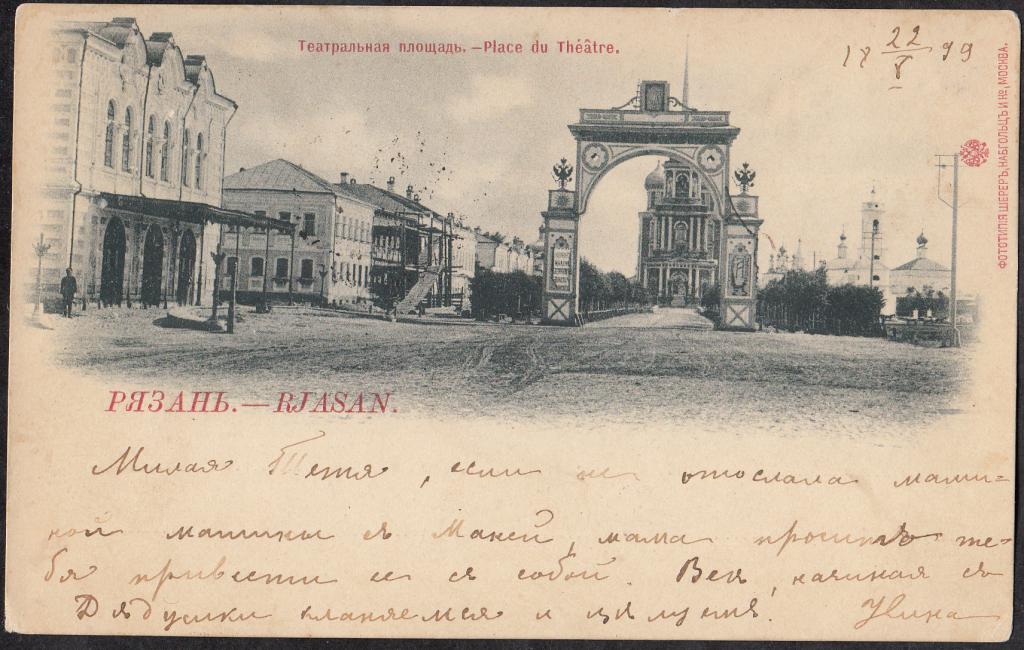 Театральная площадь. — Place du Théâtre.
18 22/8 99
ФОТОТИПІЯ ШЕРЕРЪ, НАБГОЛЬЦЪ И Ко, МОСКВА.
РЯЗАНЬ. — RJASAN.
Милая Тетя, если не отослала мами=
ной машинки съ Маней, мама проситъ те-
бя привести ее съ собой. Всѣ, начиная съ
Дѣдушки кланяемся и цѣлуемъ!